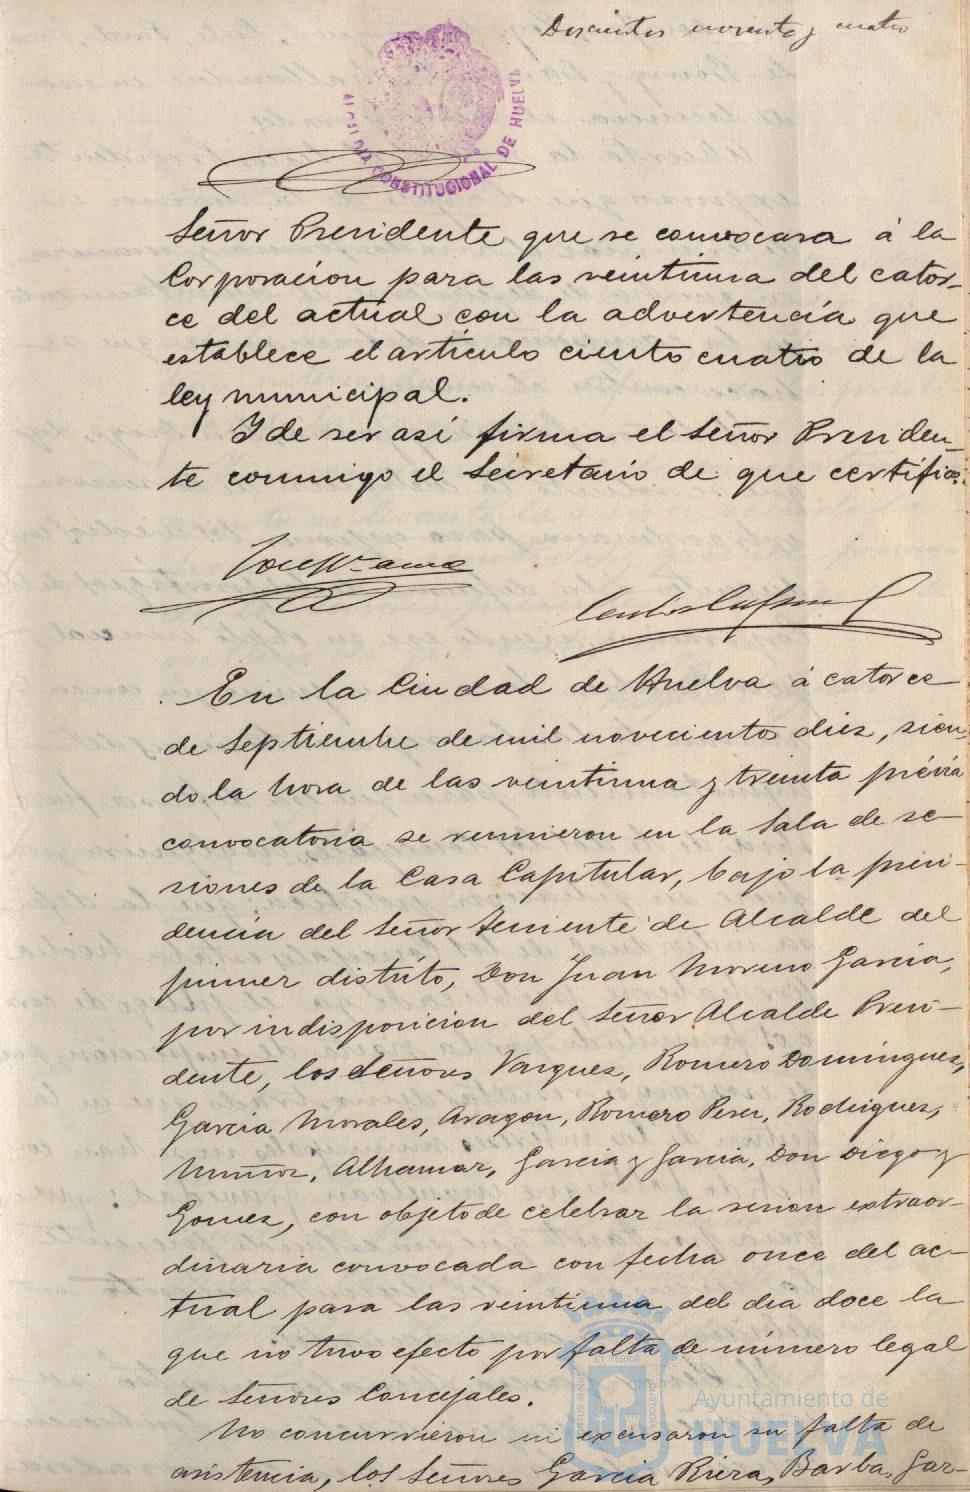 Doscientos noventa y cuatro
ALCALDIA CONSTITUCIONAL DE HUELVA
Señor Presidente que se convocara á la
Corporación para las veintiuna del cator-
ce del actual con la advertencia que
establece el artículo ciento cuatro de la
ley municipal.
Y de ser así firma el Señor Presiden-
te conmigo el Secretario de que certifico.
En la Ciudad de Huelva á catorce
de Septiembre de mil novecientos diez, sien-
do la hora de las veintiuna y treinta prévia
convocatoria se reunieron en la Sala de se-
siones de la Casa Capitular, bajo la presi-
dencia del Señor Teniente de Alcalde del
primer distrito, Don Juan Moreno García,
por indisposicion del Señor Alcalde Presi-
dente, los Señores Vazquez, Romero Dominguez,
Garcia Morales, Aragon, Romero Perez, Rodriguez,
Muñoz, Alhamar, Garcia y Garcia, Don Diego y
Gomez, con objeto de celebrar la sesion extraor-
dinaria convocada con fecha once del ac-
tual para las veintiuna del dia doce la
que no tuvo efecto por falta de número legal
de Señores Concejales.
No concurrieron ni excusaron su falta de
asistencia, los Señores Garcia Riera, Barba, Gar-
Ayuntamiento de
HUELVA